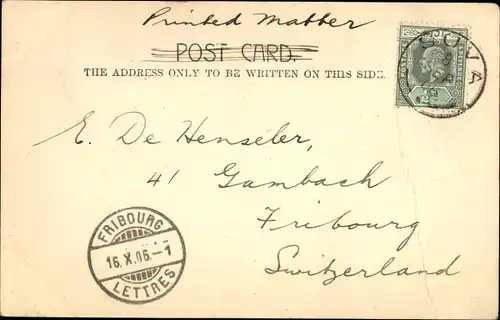 Printed Matter
POST CARD.
THE ADDRESS ONLY TO BE WRITTEN ON THIS SIDE.
SUVA
POSTAGE
E. De Henseler,
41 Gambach
Fribourg
Switzerland
FRIBOURG
16.X.06.–1
LETTRES